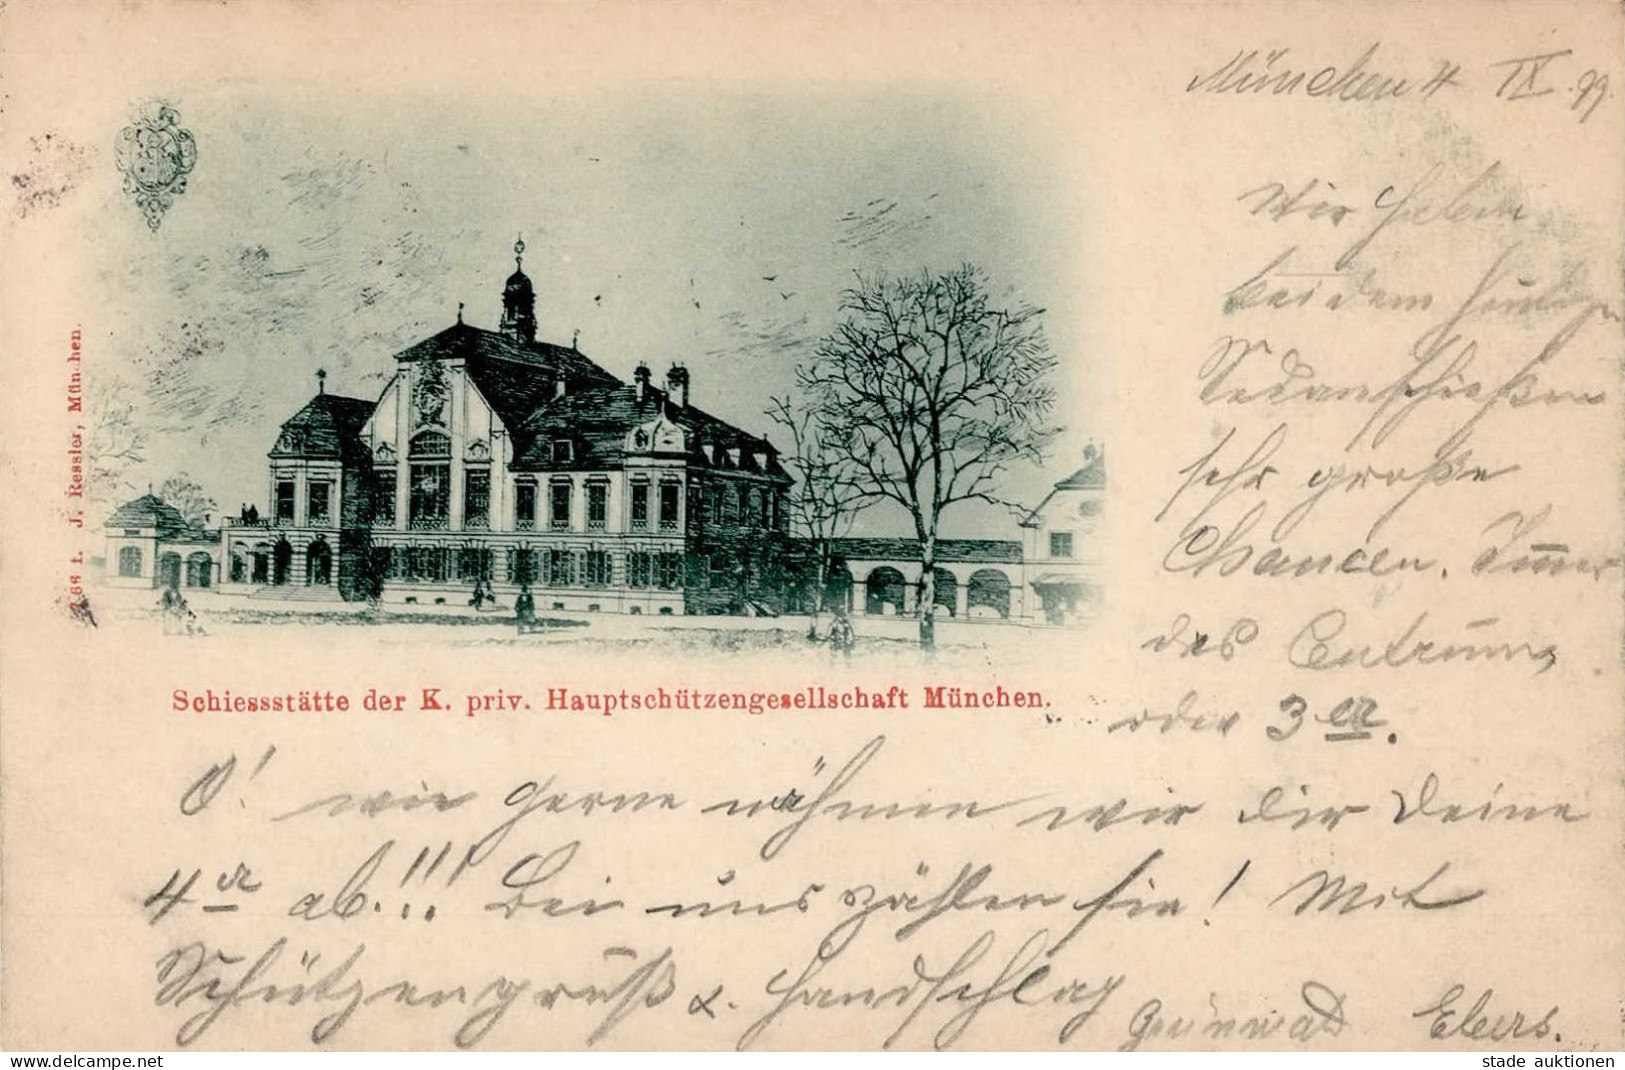 München 4 IX. 99.
Wir haben
bei dem heutigen
Sedanschießen
sehr große
Chancen. Immer
des Centrums
oder 3er.
J. Ressler, München.
Schiessstätte der K. priv. Hauptschützengesellschaft München.
O! wie gerne nähmen wir Dir Deine
4er ab!!! Bei uns zählen sie! Mit
Schützengruß & Handschlag
Grünwald Ebers.
delcampe.net
stade auktionen